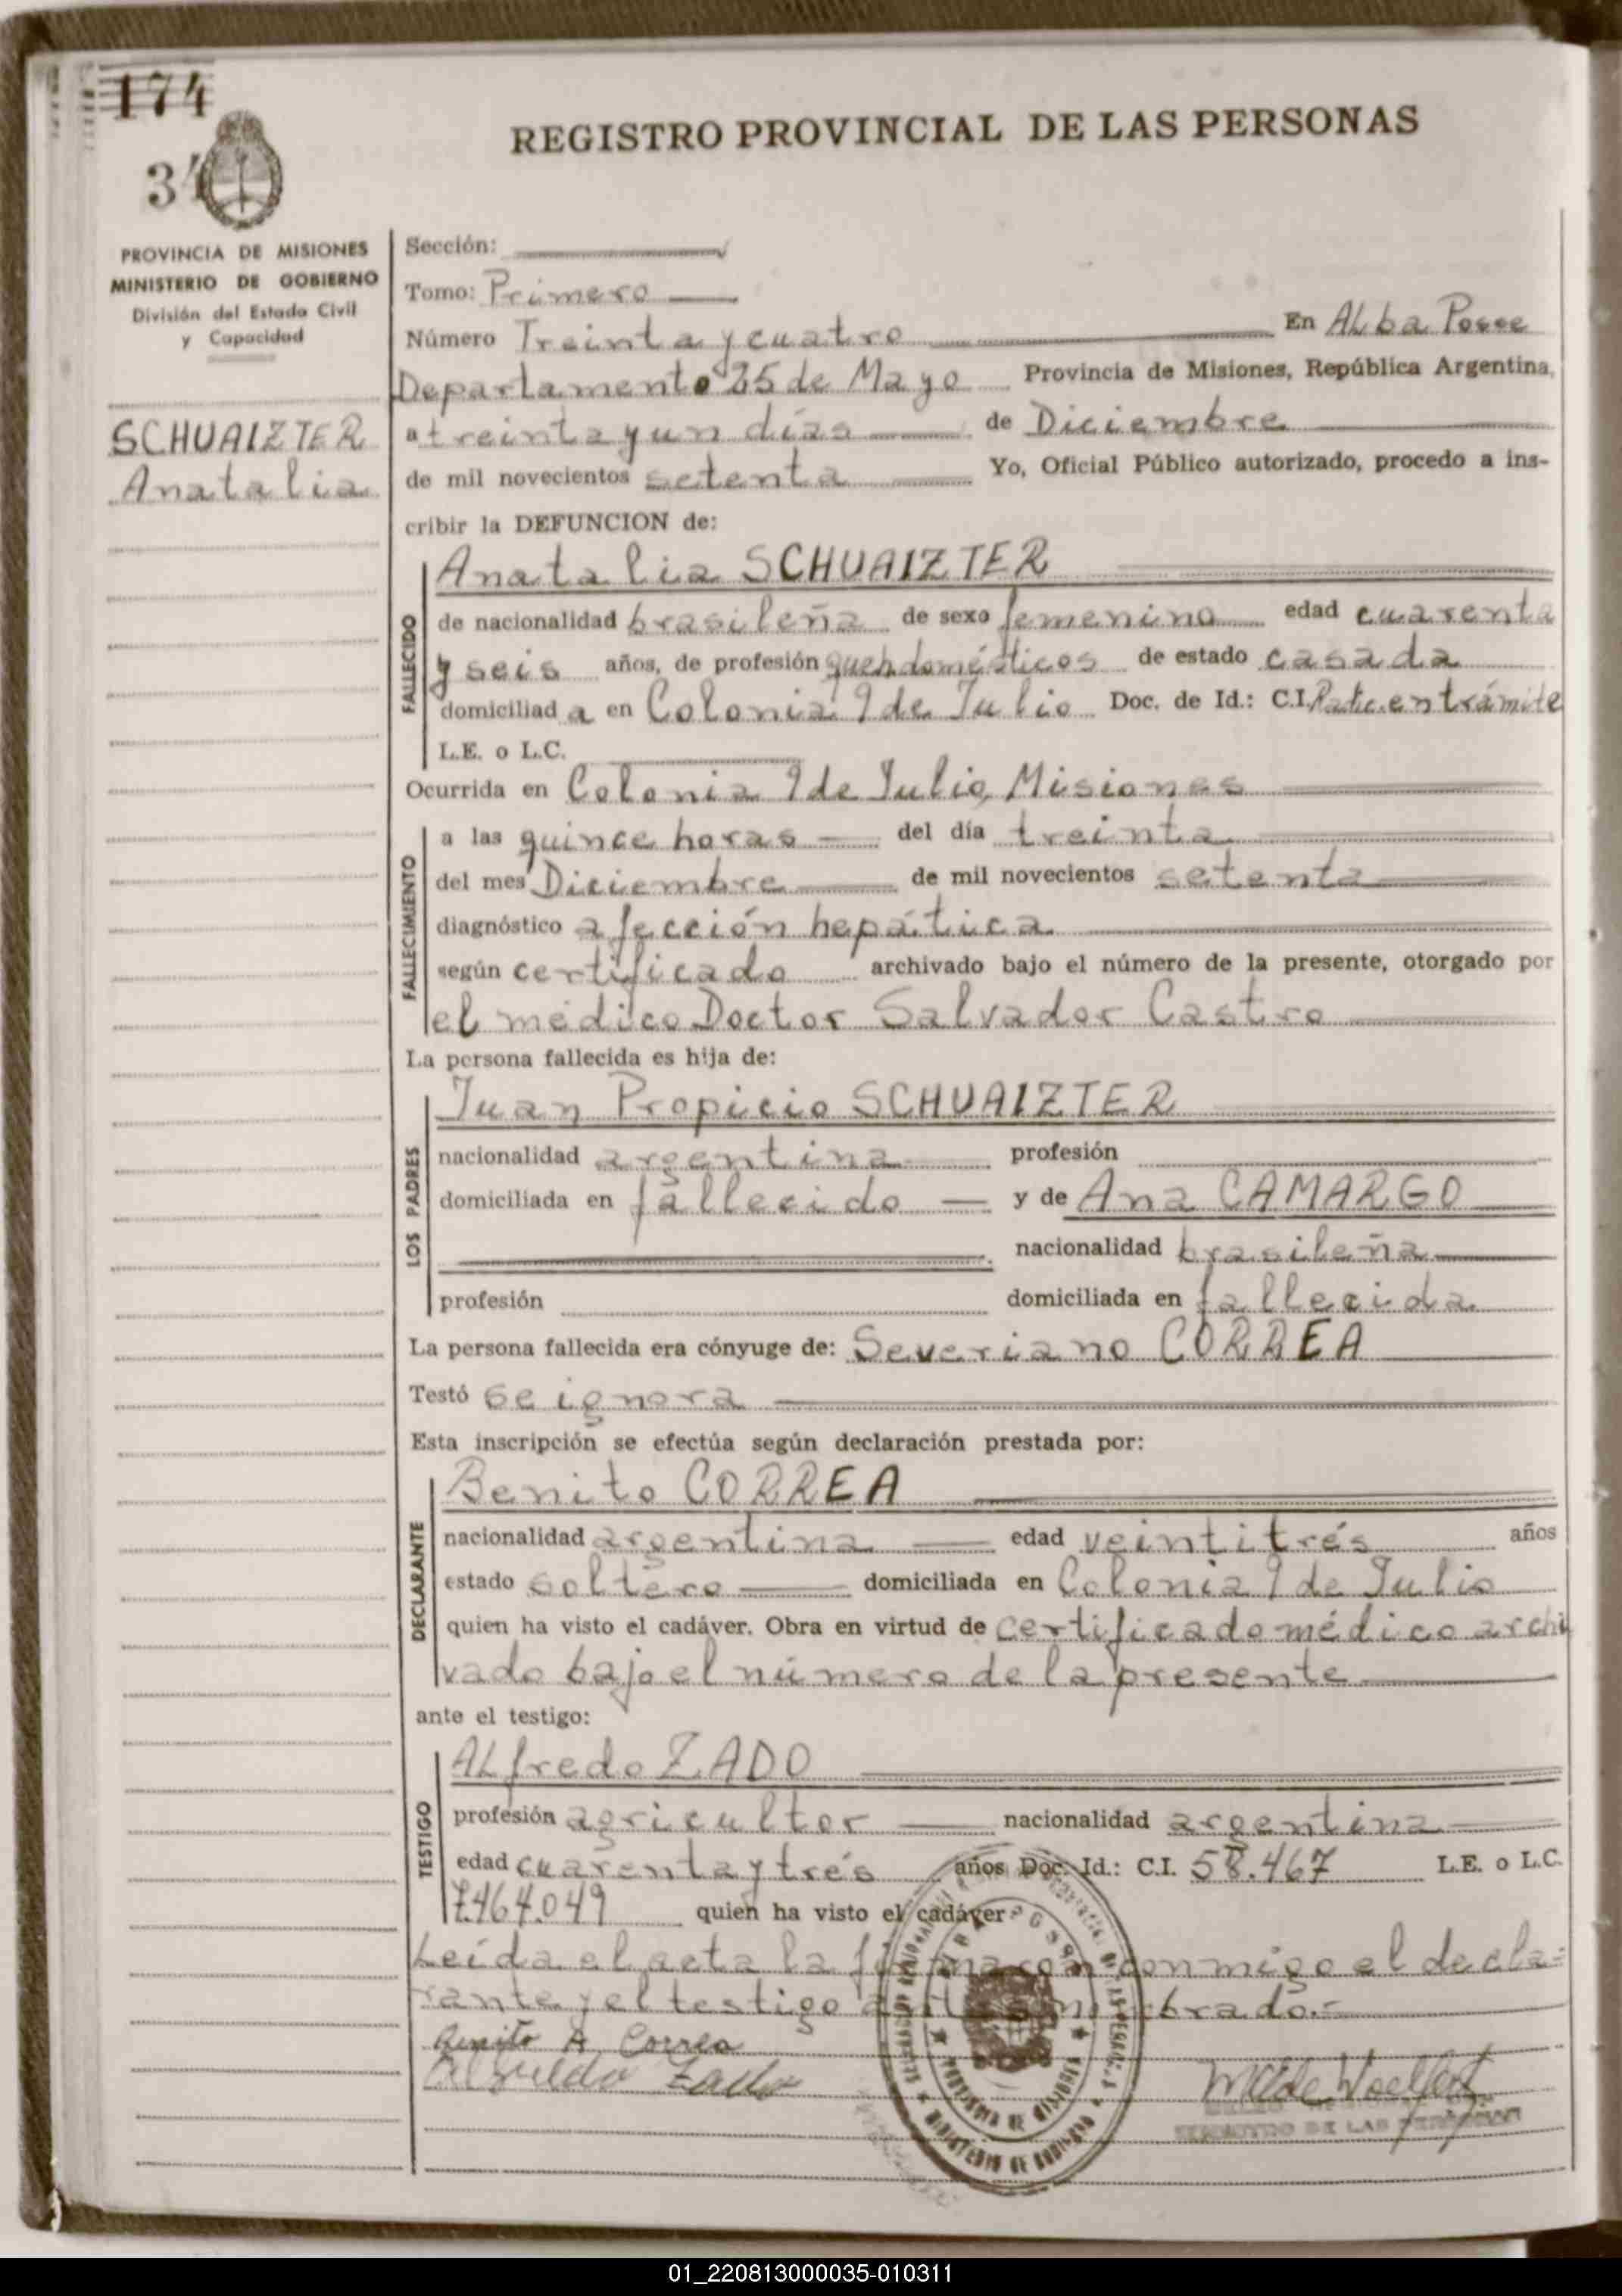 174
34
REGISTRO PROVINCIAL DE LAS PERSONAS
PROVINCIA DE MISIONES
MINISTERIO DE GOBIERNO
División del Estado Civil
y Capacidad
SCHUAIZTER
Anatalia
Sección:
Tomo: Primero
Número Treinta y cuatro En Alba Posse
Departamento 25 de Mayo Provincia de Misiones, República Argentina,
a treinta y un días de Diciembre
de mil novecientos setenta Yo, Oficial Público autorizado, procedo a ins-
cribir la DEFUNCION de:
FALLECIDO
Anatalia SCHUAIZTER
de nacionalidad brasileña de sexo femenino edad cuarenta
y seis años, de profesión domésticos de estado casada
domiciliad a en Colonia 9 de Julio Doc. de Id.: C.I. en trámite
L.E. o L.C.
Ocurrida en Colonia 9 de Julio, Misiones
FALLECIMIENTO
a las quince horas del día treinta
del mes Diciembre de mil novecientos setenta
diagnóstico afección hepática
según certificado archivado bajo el número de la presente, otorgado por
el médico Doctor Salvador Castro
La persona fallecida es hija de:
LOS PADRES
Juan Propicio SCHUAIZTER
nacionalidad argentina profesión
domiciliada en fallecido y de Ana CAMARGO
nacionalidad brasileña
profesión domiciliada en fallecida
La persona fallecida era cónyuge de: Severiano CORREA
Testó se ignora
Esta inscripción se efectúa según declaración prestada por:
DECLARANTE
Benito CORREA
nacionalidad argentina edad veintitrés años
estado soltero domiciliada en Colonia 9 de Julio
quien ha visto el cadáver. Obra en virtud de certificado médico archi
vado bajo el número de la presente
ante el testigo:
TESTIGO
Alfredo ZADO
profesión agricultor nacionalidad argentina
edad cuarenta y trés años Doc. Id.: C.I. 58.467 L.E. o L.C.
7.464.049 quien ha visto el cadáver
Leída el acta la firman con conmigo el decla=
rante y el testigo antes nombrado.-
Benito A. Correa
Alfredo Zado
PROVINCIA DE MISIONES
MINISTERIO DE GOBIERNO
REGISTRO DE LAS PERSONAS
01_220813000035-010311